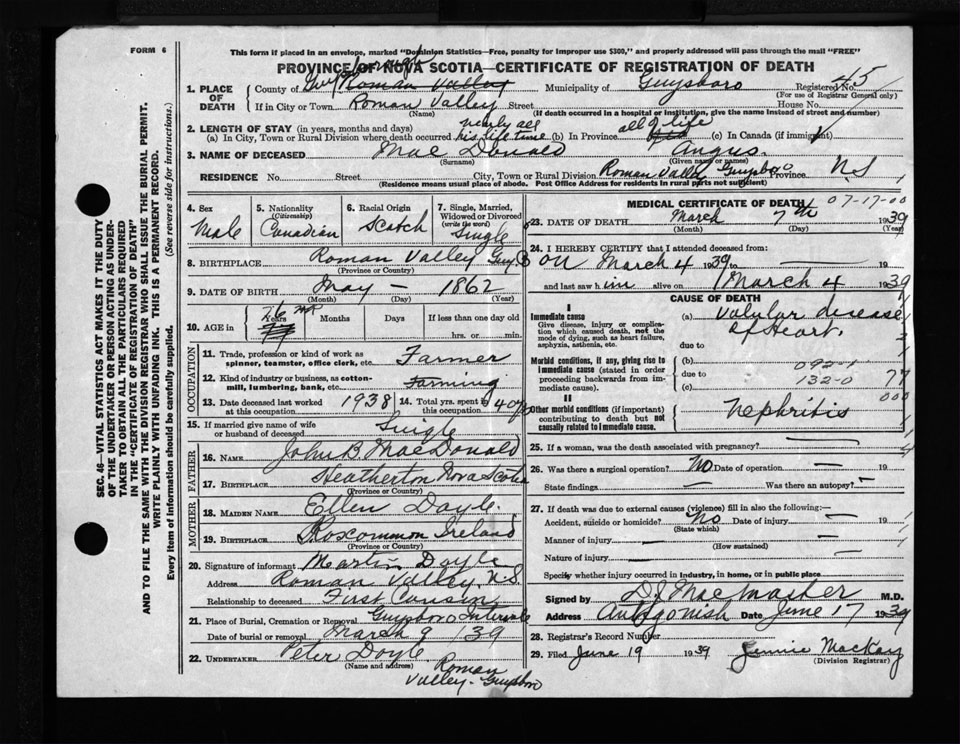 FORM 6
This form if placed in an envelope, marked "Dominion Statistics—Free, penalty for improper use $300," and properly addressed will pass through the mail "FREE"
PROVINCE OF NOVA SCOTIA—CERTIFICATE OF REGISTRATION OF DEATH
SEC. 46—VITAL STATISTICS ACT MAKES IT THE DUTY OF THE UNDERTAKER OR PERSON ACTING AS UNDERTAKER TO OBTAIN ALL THE PARTICULARS REQUIRED IN THE "CERTIFICATE OF REGISTRATION OF DEATH" AND TO FILE THE SAME WITH THE DIVISION REGISTRAR WHO SHALL ISSUE THE BURIAL PERMIT.
WRITE PLAINLY WITH UNFADING INK. THIS IS A PERMANENT RECORD.
Every item of information should be carefully supplied. (See reverse side for instructions.)
1. PLACE OF DEATH County of Roman Valley Municipality of Guysboro Registered No. 45
(For use of Registrar General only)
If in City or Town Roman Valley Street House No.
(If death occurred in a hospital or institution, give its name instead of street and number)
2. LENGTH OF STAY (in years, months and days)
(a) In City, Town or Rural Division where death occurred nearly all his life time (b) In Province all of life (c) In Canada (if immigrant)
3. NAME OF DECEASED Mac Donald Angus.
(Surname) (Given name or names)
RESIDENCE No. Street City, Town or Rural Division Roman Valley Guysboro Province N.S
(Residence means usual place of abode. Post Office Address for residents in rural parts not sufficient)
4. Sex Male
5. Nationality (Citizenship) Canadian
6. Racial Origin Scotch
7. Single, Married, Widowed or Divorced (write the word) Single
8. BIRTHPLACE Roman Valley Guys
(Province or Country)
9. DATE OF BIRTH May — 1862
(Month) (Day) (Year)
10. AGE in 76 Years Months Days If less than one day old
hrs. or min.
OCCUPATION
11. Trade, profession or kind of work as spinner, teamster, office clerk, etc. Farmer
12. Kind of industry or business, as cotton-mill, lumbering, bank, etc. Farming
13. Date deceased last worked at this occupation 1938 14. Total yrs. spent in this occupation 40 yrs
15. If married give name of wife or husband of deceased Single
FATHER
16. NAME John B. MacDonald
17. BIRTHPLACE Heatherton Nova Scotia
(Province or Country)
MOTHER
18. MAIDEN NAME Ellen Doyle.
19. BIRTHPLACE Roscommon Ireland
(Province or Country)
20. Signature of informant Martin Doyle
Address Roman Valley, N.S.
Relationship to deceased First Cousin
21. Place of Burial, Cremation or Removal Guysboro Intervale
Date of burial or removal March 9 / 39
22. UNDERTAKER Peter Doyle Roman
(Name and address)
Valley - Guysboro
MEDICAL CERTIFICATE OF DEATH 07-17-00
23. DATE OF DEATH March 7th 1939
(Month) (Day) (Year)
24. I HEREBY CERTIFY that I attended deceased from:
on March 4 1939 to 19
and last saw him alive on March 4 1939
CAUSE OF DEATH
I
Immediate cause
Give disease, injury or complication which caused death, not the mode of dying, such as heart failure, asphyxia, asthenia, etc.
(a) Valvular disease of Heart.
due to
Morbid conditions, if any, giving rise to immediate cause (stated in order proceeding backwards from immediate cause).
(b) 092-1
due to
(c) 132-0 77
II
Other morbid conditions (if important) contributing to death but not causally related to immediate cause.
Nephritis 000
25. If a woman, was the death associated with pregnancy? —
26. Was there a surgical operation? No Date of operation — 19
State findings — Was there an autopsy? —
27. If death was due to external causes (violence) fill in also the following:—
Accident, suicide or homicide? No Date of injury — 19
(State which)
Manner of injury —
(How sustained)
Nature of injury —
Specify whether injury occurred in industry, in home, or in public place
Signed by M.D.
Address Antigonish Date June 17 1939
28. Registrar's Record Number
29. Filed June 19 1939 Jennie MacKay
(Division Registrar)